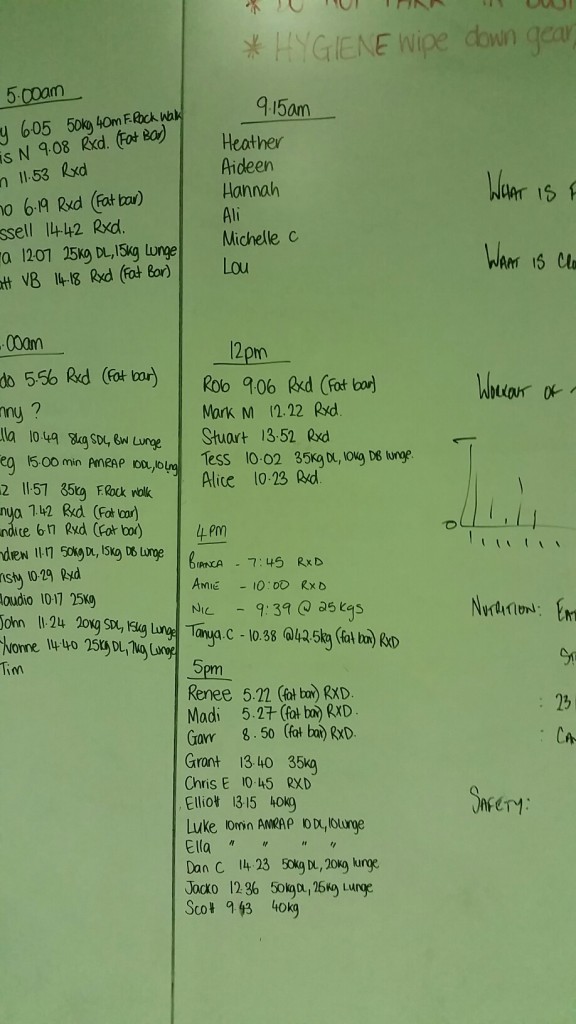 * HYGIENE wipe down gear,
5.00am
y 6.05 50kg 40m F.Rack Walk
is N 9.08 Rxd. (Fat Bar)
n 11.53 Rxd
no 6.19 Rxd (Fat bar)
ssell 14.42 Rxd.
a 12.07 25kg DL, 15kg Lunge
att VB 14.18 Rxd (Fat Bar)
.00am
do 5.56 Rxd (Fat bar)
nny ?
lla 10.49 8kg SDL, BW Lunge
eg 15.00 min AMRAP 10DL, 10Lng
z 11.57 35kg F.Rack Walk
nya 7.42 Rxd (Fat bar)
ndice 6.17 Rxd (Fat bar)
ndrew 11.17 50kg DL, 15kg DB Lunge
nsty 10.29 Rxd
laudio 10.17 25kg
John 11.24 20kg SDL, 15kg Lunge
Yvonne 14.40 25kg DL, 7kg Lunge
Tim
9.15am
Heather
Aideen
Hannah
Ali
Michelle C
Lou
12pm
Rob 9.06 Rxd (Fat bar)
Mark M 12.22 Rxd.
Stuart 13.52 Rxd
Tess 10.02 35kg DL, 10kg DB lunge.
Alice 10.23 Rxd.
4pm
BIANCA - 7:45 RXD
AMIE - 10:00 RXD
NIC - 9:39 @ 25kgs
Tanya.C - 10.38 @42.5kg (fat bar) RXD
5pm
Renee 5.22 (fat bar) RXD.
Madi 5.27 (fat bar) RXD.
Garr 8.50 (fat bar) RXD.
Grant 13.40 35kg
Chris E 10.45 RXD
Elliott 13.15 40kg
Luke 10min AMRAP 10 DL, 10lunge
Ella " " " "
Dan C 14.23 50kg DL, 20kg lunge
Jacko 12.36 50kg DL, 25kg Lunge
Scott 9.43 40kg
WHAT IS F
WHAT IS CRO
WORKOUT OF
0
NUTRITION: EAT
: 23
: CA
SAFETY: